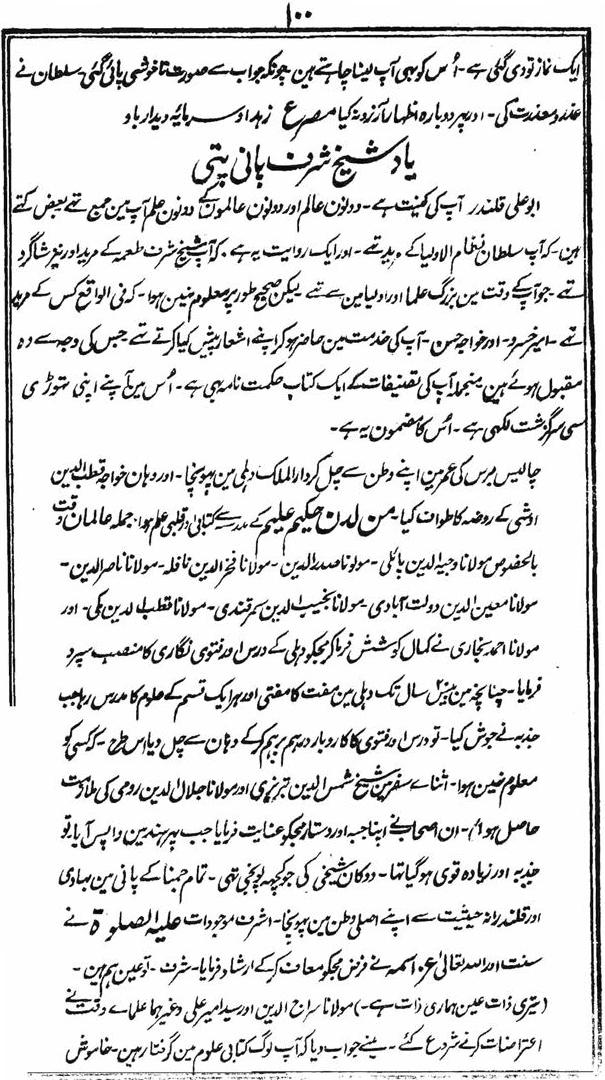 ۱۰۰
ایک نماز تو دی گئی ہے۔ اُس کو بھی آپ لینا چاہتے ہین۔ چونکہ جواب سے صورت نا خوشی پائی گئی۔ سلطان نے
عذر و معذرت کی۔ اور پھر دوبارہ اظہار آرزو نہ کیا مصرع زہد او سرمایہ دیدار باو
یاد شیخ شرف پانی پتی
ابو علی قلندر آپ کی کنیت ہے۔ دونون عالم اور دونون عالمون کے دونون علم آپ مین جمع تھے بعض کہتے
ہین۔ کہ آپ سلطان نظام الاولیا کے مرید تھے۔ اور ایک روایت یہ ہے۔ کہ آپ شیخ شرف طعمہ کے مرید اور نیز شاگرد
تھے۔ جو آپ کے وقت مین بزرگ علما اور اولیا مین سے تھے لیکن صحیح طور پر معلوم نہین ہوا۔ کہ فی الواقع کس کے مرید
تھے۔ امیر خسرو۔ اور خواجہ حسن۔ آپ کی خدمت مین حاضر ہو کر اپنے اشعار پیش کیا کرتے تھے جس کی وجہ سے وہ
مقبول ہوئے ہین۔ منجملہ آپ کی تصنیفات کے ایک کتاب حکمت نامہ بھی ہے۔ اُس مین آپنے اپنی تھوڑی
سی سرگزشت لکھی ہے۔ اُس کا مضمون یہ ہے۔
چالیس برس کی عمر مین اپنے وطن سے چل کر دار الملاک دہلی مین پہونچا۔ اور وہان خواجہ قطب الدین
اوشی کے روضہ کا طواف کیا۔ من لدن حکیم علیم کے مدرسہ سے کتابی و قلبی علم ہوا۔ جملہ عالمان وقت
بالخصوص مولانا وجیہ الدین بائلی۔ مولونا صدر الدین۔ مولانا فخر الدین نافلہ۔ مولانا ناصر الدین۔
مولانا معین الدین دولت آبادی۔ مولانا نجیب الدین سمرقندی۔ مولانا قطب الدین مکی۔ اور
مولانا احمد بخاری نے کمال کوشش فرما کر مجکو دہلی کے درس اور فتوی نگاری کا منصب سپرد
فرمایا۔ چنانچہ مین ۲۰ بیس سال تک دہلی مین ہفت کا مفتی اور ہر ایک قسم کے علوم کا مدرس رہا جب
جذبہ نے جوش کیا۔ تو درس اور فتوی کا کاروبار درہم برہم کر کے وہان سے چل دیا اس طرح۔ کہ کسی کو
معلوم نہین ہوا۔ اثناے سفر مین شیخ شمس الدین تبریزی اور مولانا جلال الدین رومی کی ملازمت
حاصل ہوئی۔ ان اصحاب نے اپنا جبہ اور دستار مجکو عنایت فرمایا جب پھر ہند مین واپس آیا۔ تو
جذبہ اور زیادہ قوی ہو گیا تھا۔ دوکان شیخی کی جو کچھ پونجی تھی۔ تمام جمنا کے پانی مین بہا دی
اور قلندرانہ حیثیت سے اپنے اصلی وطن مین پہونچا۔ اشرف موجودات علیہ الصلوۃ نے
سنت اور اللہ تعالیٰ عز اسمہ نے فرض مجکو معاف کر کے ارشاد فرمایا۔ شرف۔ تو عین ہم ہین۔
(تیری ذات عین ہماری ذات ہے۔) مولانا سراج الدین اور سید امیر علی وغیرہما علماے وقت نے
اعتراضات کرنے شروع کئے۔ مینے جواب دیا کہ آپ لوگ کتابی علوم مین گرفتار رہین۔ خاموش